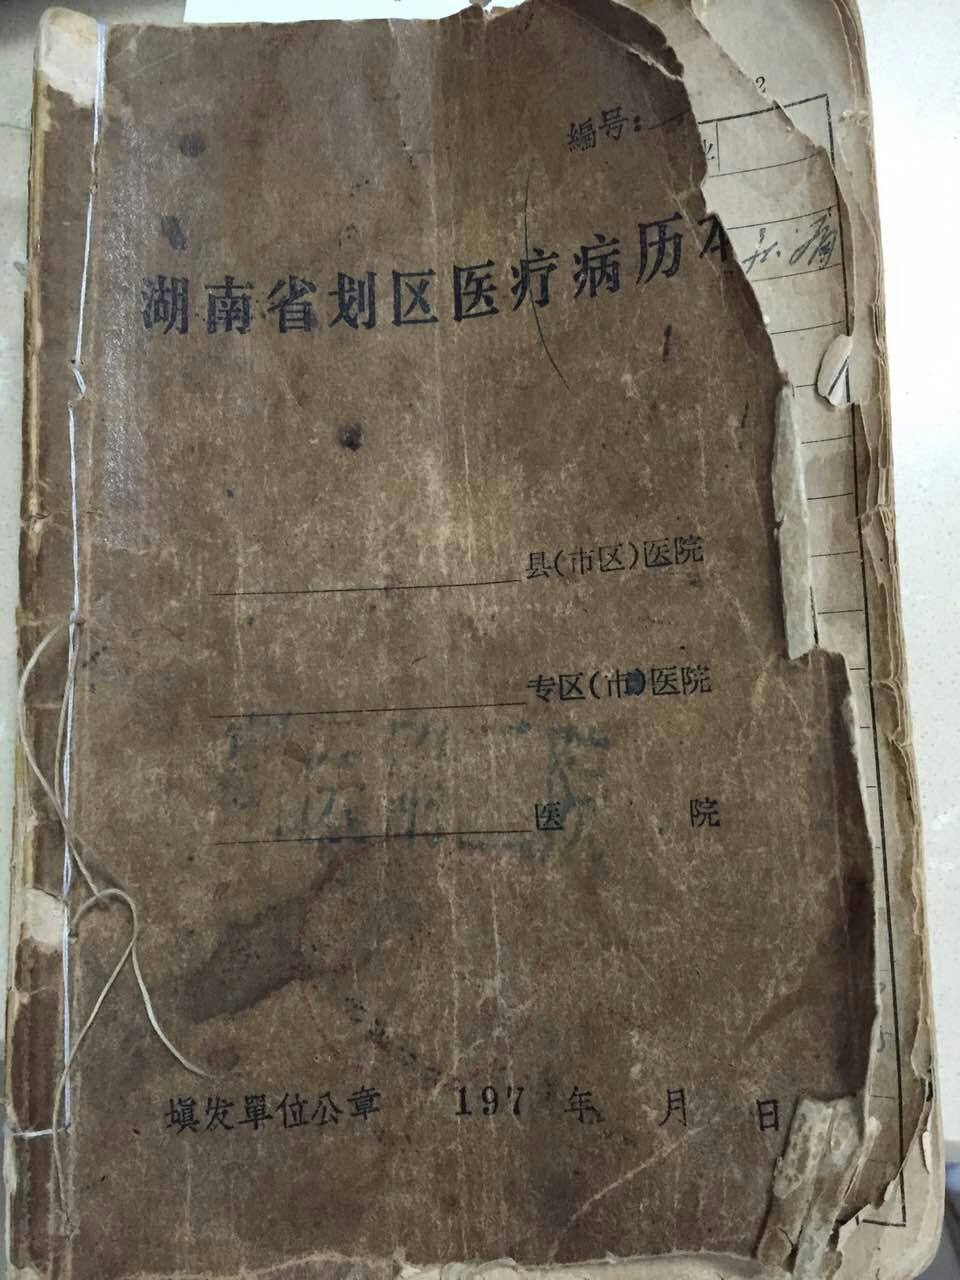 2
編号：
湖南省划区医疗病历本
县(市区)医院
专区(市)医院
医 院
填发單位公章 197 年 月 日